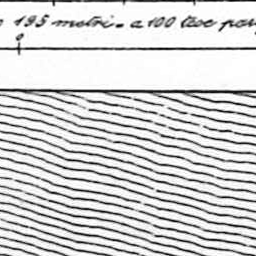 195 metri = a 100 tese par
0